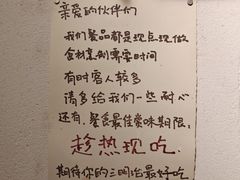 亲爱的伙伴们
我们餐品都是现点现做
食材烹制需要时间
有时客人较多
请多给我们一些耐心
还有，餐食最佳赏味期限：
趁热现吃
期待你的三明治最好吃